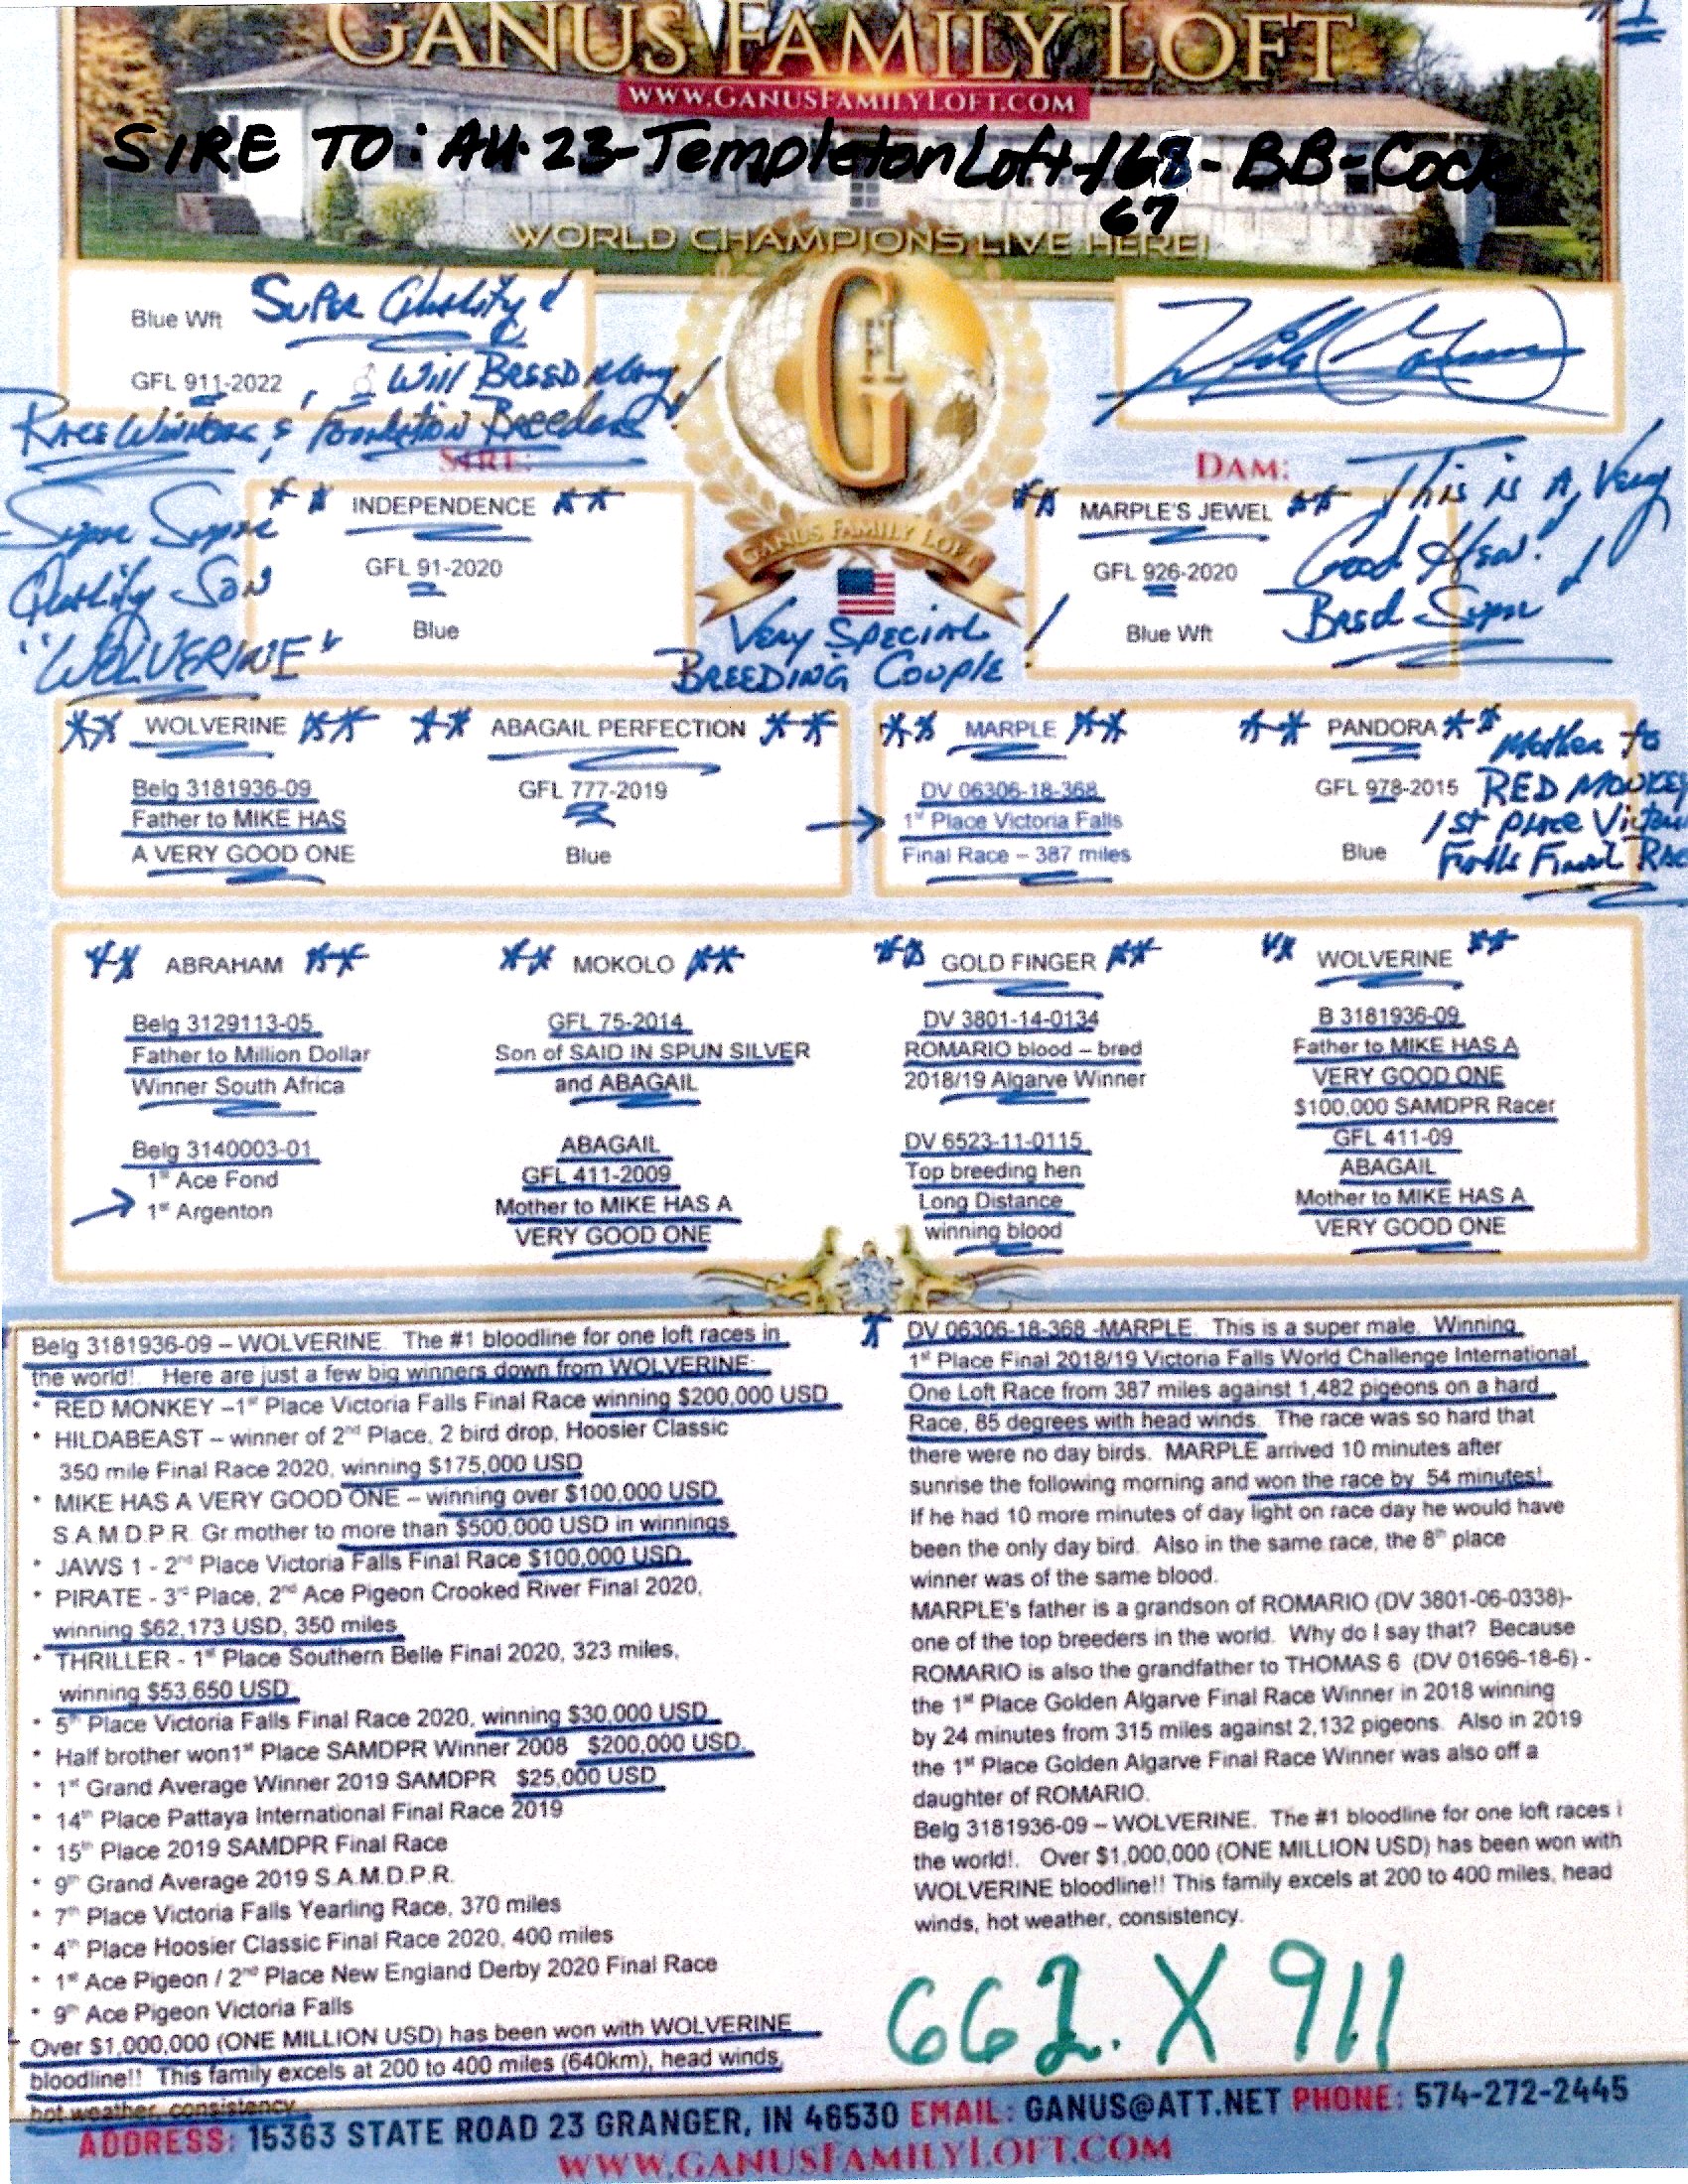 GANUS FAMILY LOFT
WWW.GANUSFAMILYLOFT.COM
SIRE TO: AU-23-Templeton Loft-168-BB-Cock
67
WORLD CHAMPIONS LIVE HERE!
Blue Wft Super Quality!
GFL 911-2022, ♂ Will Breed Many
Race Winners & Foundation Breeders!
SIRE:
** INDEPENDENCE **
GFL 91-2020
Blue
Super Super
Quality Son
"WOLVERINE"
GFL
GANUS FAMILY LOFT
Very Special
BREEDING Couple!
DAM:
** MARPLE'S JEWEL **
GFL 926-2020
Blue Wft
This is A Very
Good Hen!
Bred Super!
** WOLVERINE **
Belg 3181936-09
Father to MIKE HAS
A VERY GOOD ONE
** ABAGAIL PERFECTION **
GFL 777-2019
Blue
** MARPLE **
DV 06306-18-368
1st Place Victoria Falls
Final Race – 387 miles
** PANDORA **
GFL 978-2015
Blue
Mother to
RED MONKEY
1st Place
Final
** ABRAHAM **
Belg 3129113-05
Father to Million Dollar
Winner South Africa
Belg 3140003-01
1st Ace Fond
1st Argenton
** MOKOLO **
GFL 75-2014
Son of SAID IN SPUN SILVER
and ABAGAIL
ABAGAIL
GFL 411-2009
Mother to MIKE HAS A
VERY GOOD ONE
** GOLD FINGER **
DV 3801-14-0134
ROMARIO blood – bred
2018/19 Algarve Winner
DV 6523-11-0115
Top breeding hen
Long Distance
winning blood
** WOLVERINE **
B 3181936-09
Father to MIKE HAS A
VERY GOOD ONE
$100,000 SAMDPR Racer
GFL 411-09
ABAGAIL
Mother to MIKE HAS A
VERY GOOD ONE
Belg 3181936-09 – WOLVERINE. The #1 bloodline for one loft races in
the world!. Here are just a few big winners down from WOLVERINE:
* RED MONKEY –1st Place Victoria Falls Final Race winning $200,000 USD
* HILDABEAST – winner of 2nd Place, 2 bird drop, Hoosier Classic
350 mile Final Race 2020, winning $175,000 USD
* MIKE HAS A VERY GOOD ONE – winning over $100,000 USD
S.A.M.D.P.R. Gr.mother to more than $500,000 USD in winnings
* JAWS 1 - 2nd Place Victoria Falls Final Race $100,000 USD
* PIRATE - 3rd Place, 2nd Ace Pigeon Crooked River Final 2020,
winning $62,173 USD, 350 miles
* THRILLER - 1st Place Southern Belle Final 2020, 323 miles,
winning $53,650 USD
* 5th Place Victoria Falls Final Race 2020, winning $30,000 USD
* Half brother won1st Place SAMDPR Winner 2008 $200,000 USD.
* 1st Grand Average Winner 2019 SAMDPR $25,000 USD
* 14th Place Pattaya International Final Race 2019
* 15th Place 2019 SAMDPR Final Race
* 9th Grand Average 2019 S.A.M.D.P.R.
* 7th Place Victoria Falls Yearling Race, 370 miles
* 4th Place Hoosier Classic Final Race 2020, 400 miles
* 1st Ace Pigeon / 2nd Place New England Derby 2020 Final Race
* 9th Ace Pigeon Victoria Falls
Over $1,000,000 (ONE MILLION USD) has been won with WOLVERINE
bloodline!! This family excels at 200 to 400 miles (640km), head winds,
hot weather, consistency.
* DV 06306-18-368 -MARPLE. This is a super male. Winning
1st Place Final 2018/19 Victoria Falls World Challenge International
One Loft Race from 387 miles against 1,482 pigeons on a hard
Race, 85 degrees with head winds. The race was so hard that
there were no day birds. MARPLE arrived 10 minutes after
sunrise the following morning and won the race by 54 minutes!
If he had 10 more minutes of day light on race day he would have
been the only day bird. Also in the same race, the 8th place
winner was of the same blood.
MARPLE's father is a grandson of ROMARIO (DV 3801-06-0338)-
one of the top breeders in the world. Why do I say that? Because
ROMARIO is also the grandfather to THOMAS 6 (DV 01696-18-6) -
the 1st Place Golden Algarve Final Race Winner in 2018 winning
by 24 minutes from 315 miles against 2,132 pigeons. Also in 2019
the 1st Place Golden Algarve Final Race Winner was also off a
daughter of ROMARIO.
Belg 3181936-09 – WOLVERINE. The #1 bloodline for one loft races i
the world!. Over $1,000,000 (ONE MILLION USD) has been won with
WOLVERINE bloodline!! This family excels at 200 to 400 miles, head
winds, hot weather, consistency.
662. X 911
ADDRESS: 15363 STATE ROAD 23 GRANGER, IN 46530 EMAIL: GANUS@ATT.NET PHONE: 574-272-2445
WWW.GANUSFAMILYLOFT.COM